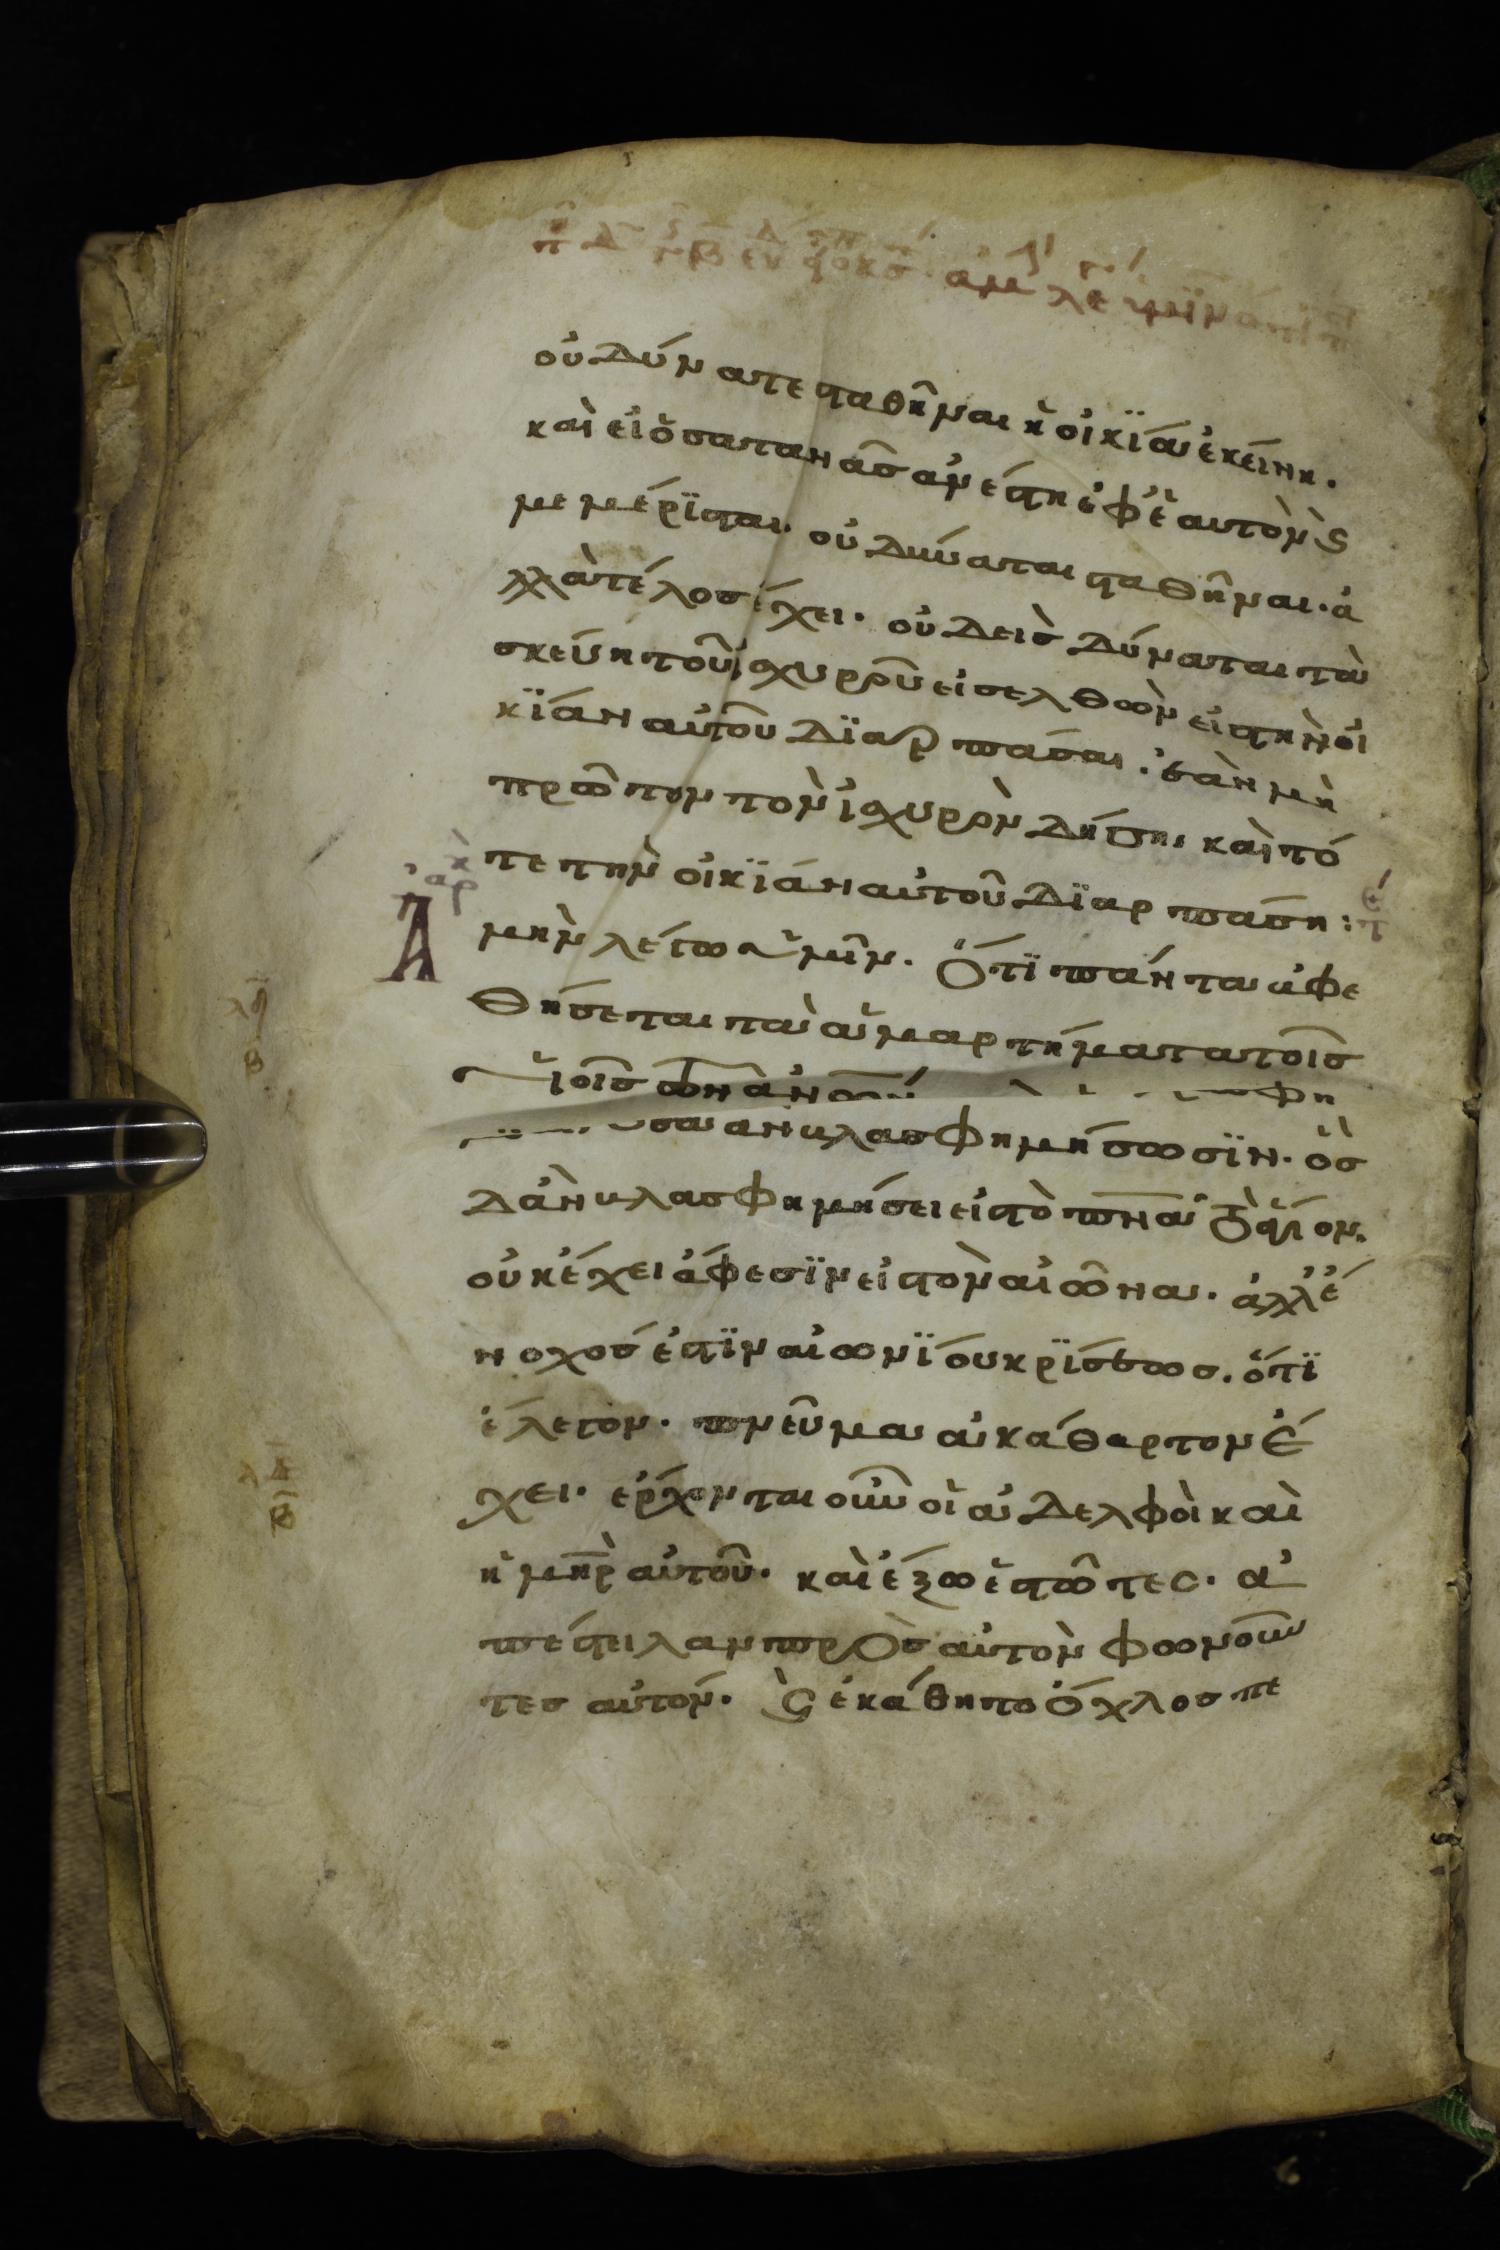 οὐ δύναται σταθῆναι ἡ οἰκΐα ἐκείνη.
καὶ εἰ ὁ σατανᾶσ ἀνέστη ἐφ ἑαυτὸν ϗ
μεμέρϊσται. οὐ δύναται σταθῆναι. ἀ
λλὰ τέλοσ ἔχει. οὐδεὶσ δύναται τὰ
σκεύη τοῦ ἰσχυροῦ εἰσελθὼν εἰς τὴν οἰ
κΐαν αὐτοῦ δϊαρπάσαι. ἐὰν μὴ
πρῶτον τὸν ἰσχυρὸν δήσῃ, καὶ τό
τε τὴν οἰκΐαν αὐτοῦ δϊαρπάσῃ:
Ἀμὴν λέγω ὑμῖν. Ὅτϊ πάντα ἀφε
θήσεται τὰ ἁμαρτήματα τοῖσ
υἱοῖσ τῶν ἀνων
σαν βλασφημήσωσϊν. ὃσ
δ ἂν βλασφημήσει εἰς τὸ πνα τὸ ἅγιον.
οὐκ ἔχει ἄφεσϊν εἰς τὸν αἰῶνα. ἀλλ ἔ
νοχοσ ἐστϊν αἰωνΐου κρΐσεωσ. ὅτϊ
ἔλεγον. πνεῦμα ἀκάθαρτον ἔ
χει. ἔρχονται οὖν οἱ ἀδελφοὶ καὶ
ἡ μηρ αὐτοῦ. καὶ ἔξω ἑστῶτες. ἀ
πέστειλαν πρὸσ αὐτὸν φωνοῦν
τεσ αὐτόν. ϗ ἐκάθητο ὄχλοσ πε